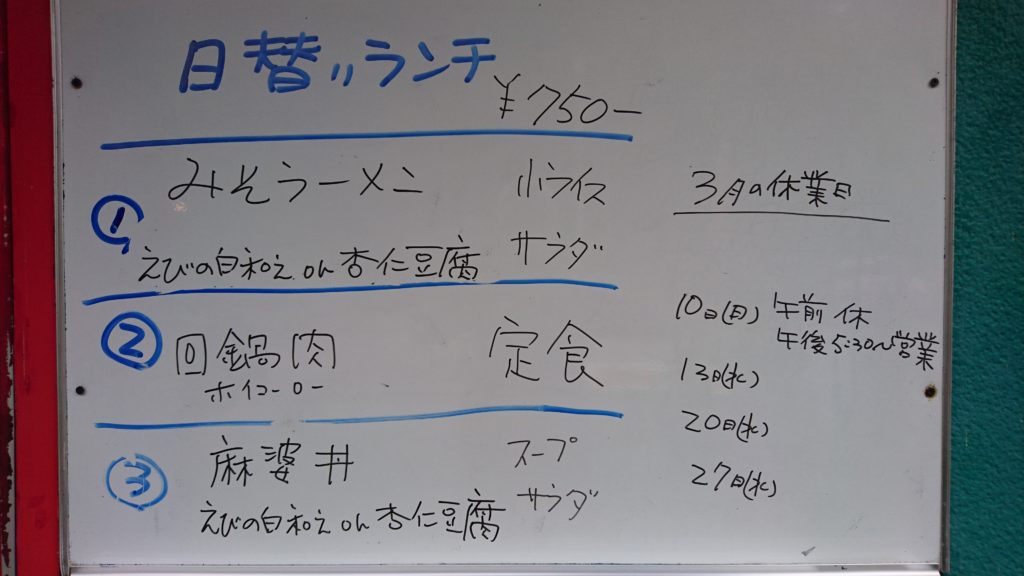 日替りランチ
¥750-
①
みそラーメン 小ライス
サラダ
えびの白和え on 杏仁豆腐
②
回鍋肉 定食
ホイコーロー
③
麻婆丼 スープ
サラダ
えびの白和え on 杏仁豆腐
3月の休業日
10日(日) 午前 休
午後5:30〜営業
13日(水)
20日(水)
27日(水)